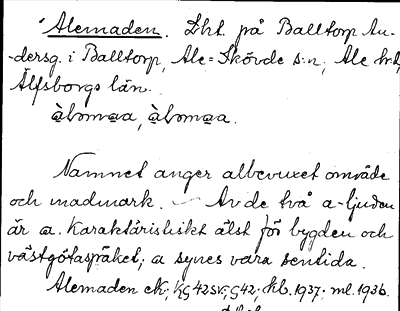 Alemaden. Lht. på Balltorp An-
dersg. i Balltorp, Ale-Skövde s:n, Ale hd,
Älfsborgs län.
Namnet anger albevuxet område
och madmark. — Av de två a-ljuden
är ɑ. Karaktäristiskt älst för bygden och
västgötaspråket; a synes vara sentida.
Alemaden ek; kb. 1937: ml. 1936.